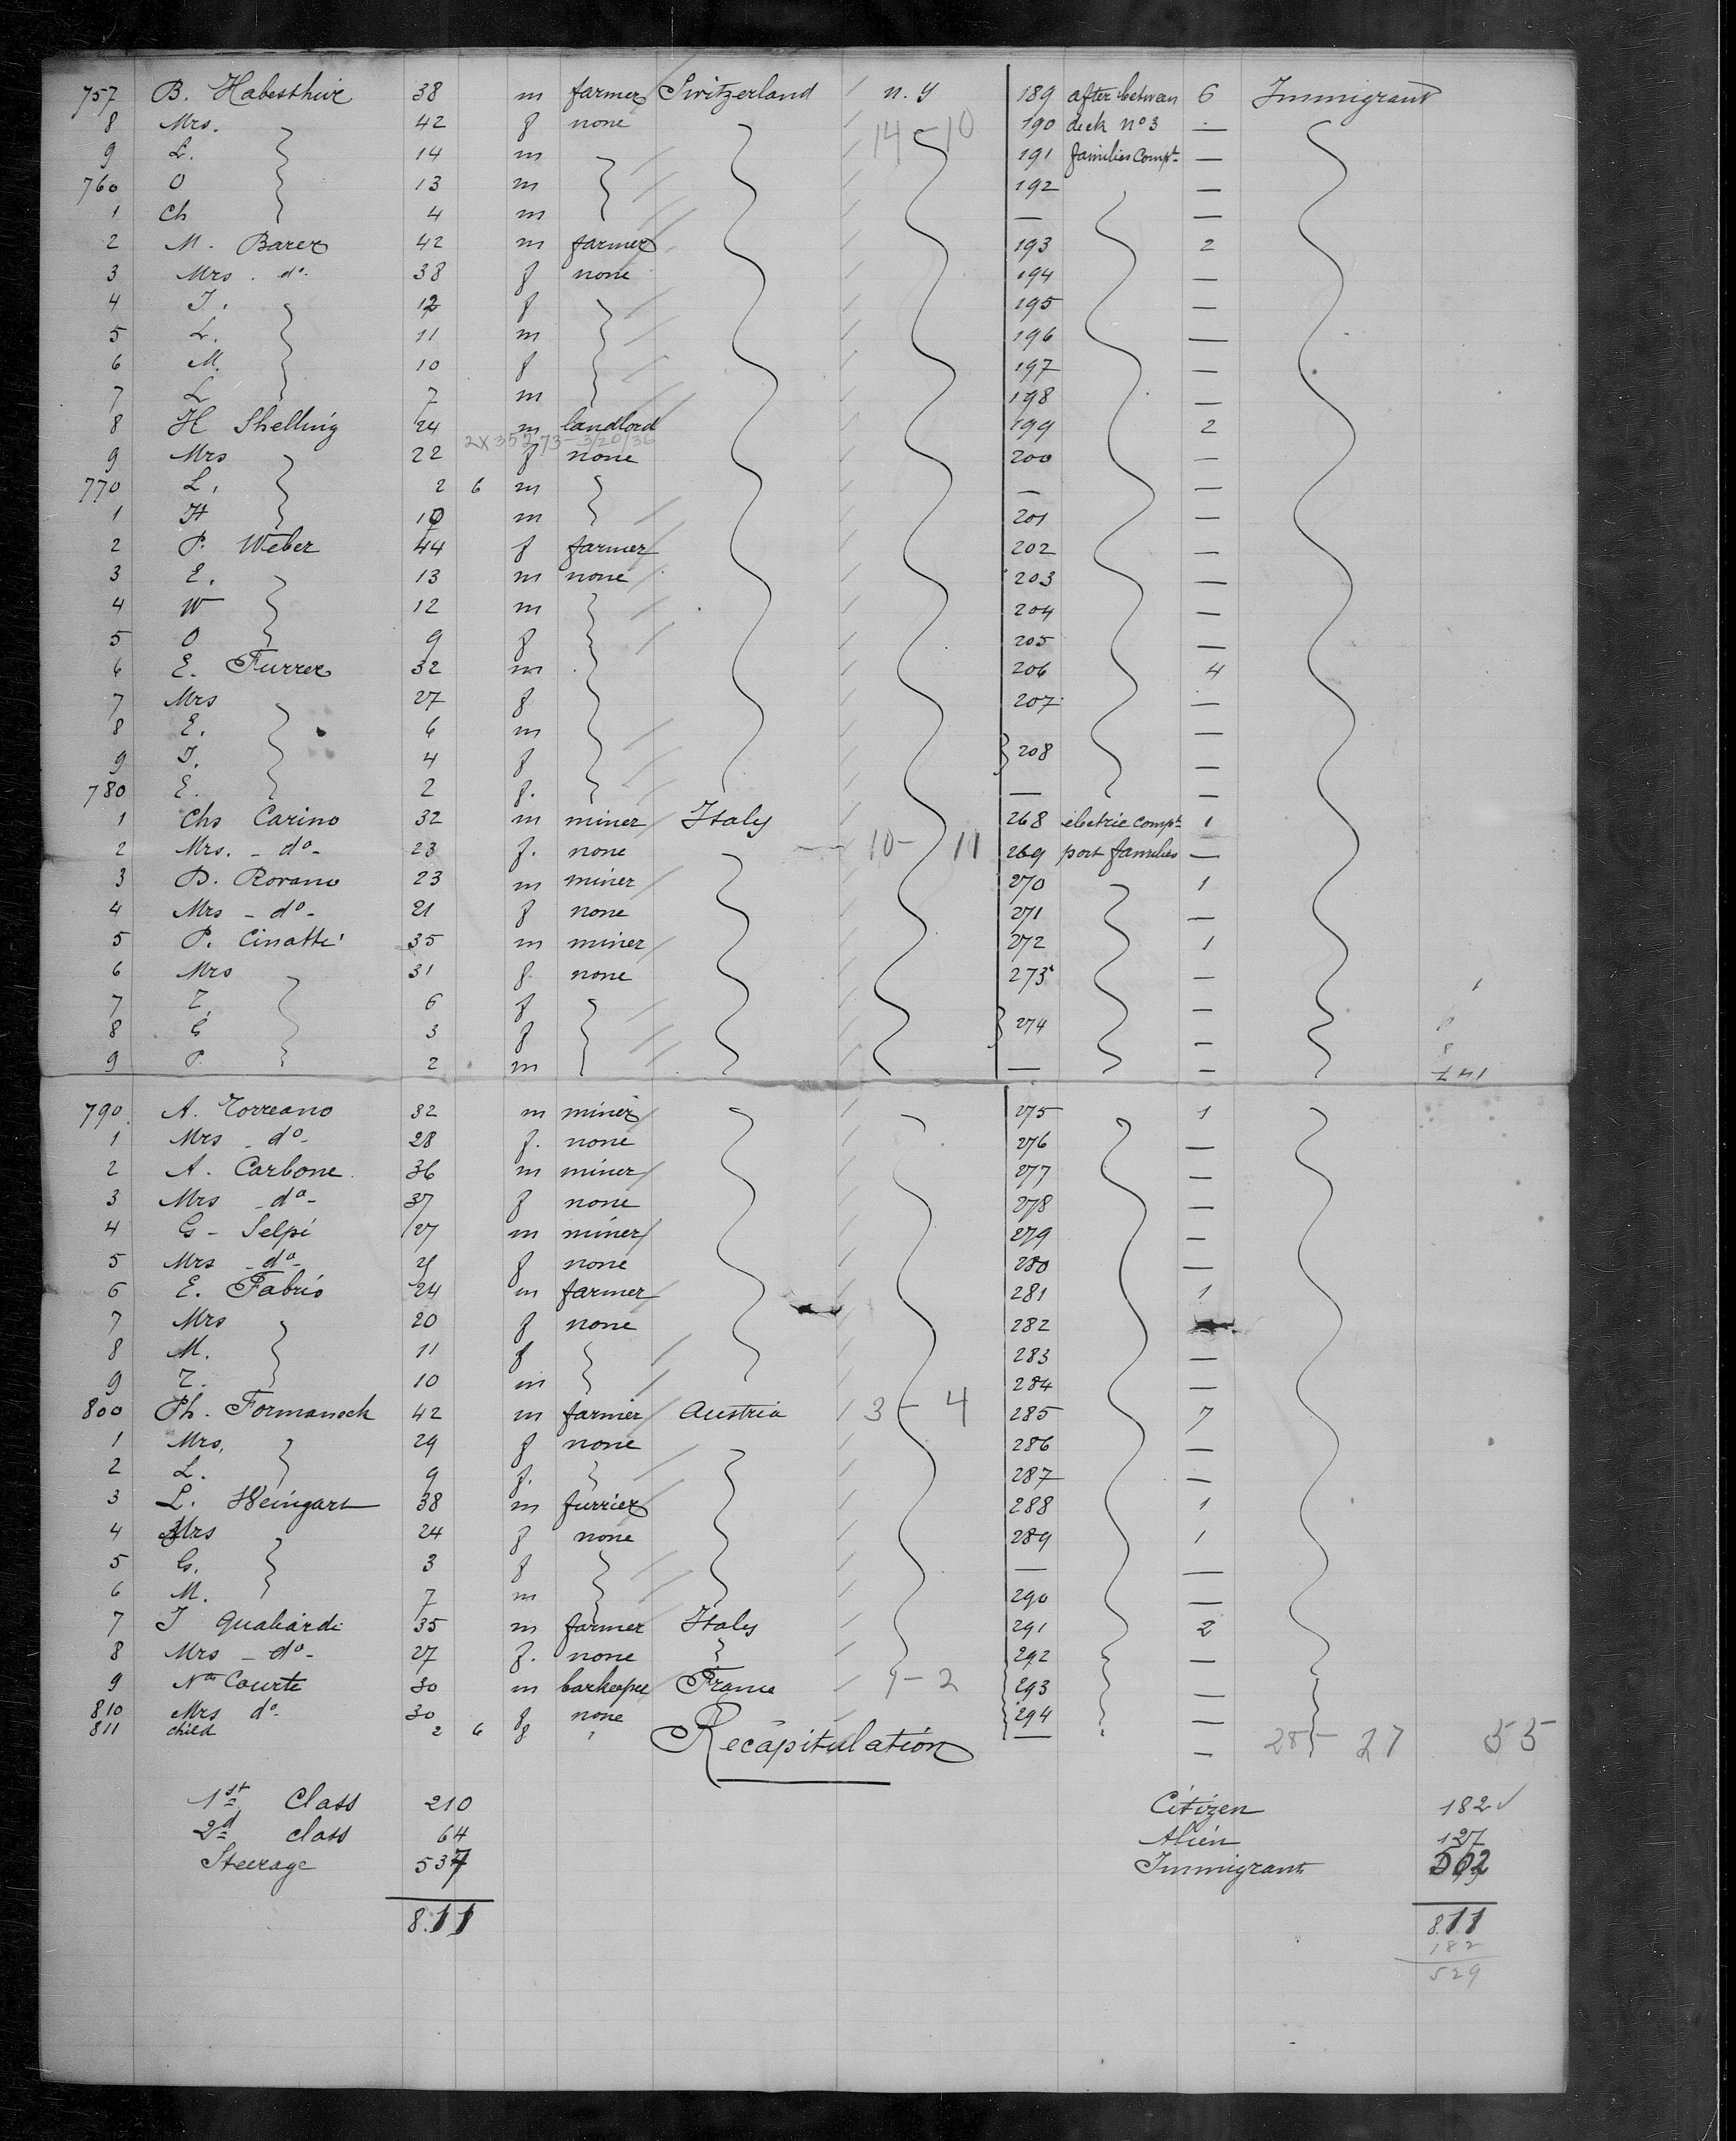 757 B. Habesthur 38 m farmer Switzerland n.y 189 after betwen 6 Immigrant
8 Mrs. 42 f none 14 - 10 190 deck no 3 —
9 L. 14 m 191 families Compt —
760 O 13 m 192 —
1 Ch 4 m — —
2 M. Barer 42 m farmer 193 2
3 Mrs. do 38 f none 194 —
4 J. 12 f 195 —
5 L. 11 m 196 —
6 M. 10 f 197 —
7 L 7 m 198 —
8 H Shelling 24 m landlord 199 2
2X35273-3/20/36
9 Mrs 22 f none 200 —
770 L, 2 6 m — —
1 H 10 m 201 —
2 P. Weber 44 f farmer 202 —
3 E. 13 m none 203 —
4 W 12 m 204 —
5 O 9 f 205 —
6 E. Furrer 32 m 206 4
7 Mrs 27 f 207 —
8 E. 6 m —
9 J. 4 f 208 —
780 E. 2 f. — —
1 Chs Carino 32 m miner Italy 268 electric compt 1
2 Mrs. - do - 23 f. none 10 - 11 269 port families —
3 D. Rovano 23 m miner 270 1
4 Mrs - do - 21 f none 271 —
5 P. Cinatti 35 m miner 272 1
6 Mrs 31 f none 273 —
7 6 f —
8 G 3 f 274 —
9 P 2 m — —
790 A. Torreano 32 m miner 275 1
1 Mrs - do - 28 f. none 276 —
2 A. Carbone 36 m miner 277 —
3 Mrs - do - 37 f none 278 —
4 G - Selpi 27 m miner 279 —
5 Mrs - do - f none 280 —
6 E. Fabris 24 m farmer 281 1
7 Mrs 20 f none 282 —
8 M. 11 f 283 —
9 10 m 284 —
800 Ph. Formaneck 42 m farmer Austria 3 - 4 285 7
1 Mrs, 29 f none 286 —
2 L. 9 f. 287 —
3 L. Weingart 38 m furrier 288 1
4 Mrs 24 f none 289 1
5 G. 3 f — —
6 M. 7 m 290 —
7 J Qualiardi 35 m farmer Italy 291 2
8 Mrs - do - 27 f. none 292 —
9 Courte 30 m barkeeper France 1 - 2 293 —
810 Mrs do 30 f none 294 —
811 child 2 6 f — — 28 - 27 55
Recapitulation
1st Class 210 Citizen 182
2d class 64 Alien 127
Steerage 537 Immigrants 502
811 811
182
529